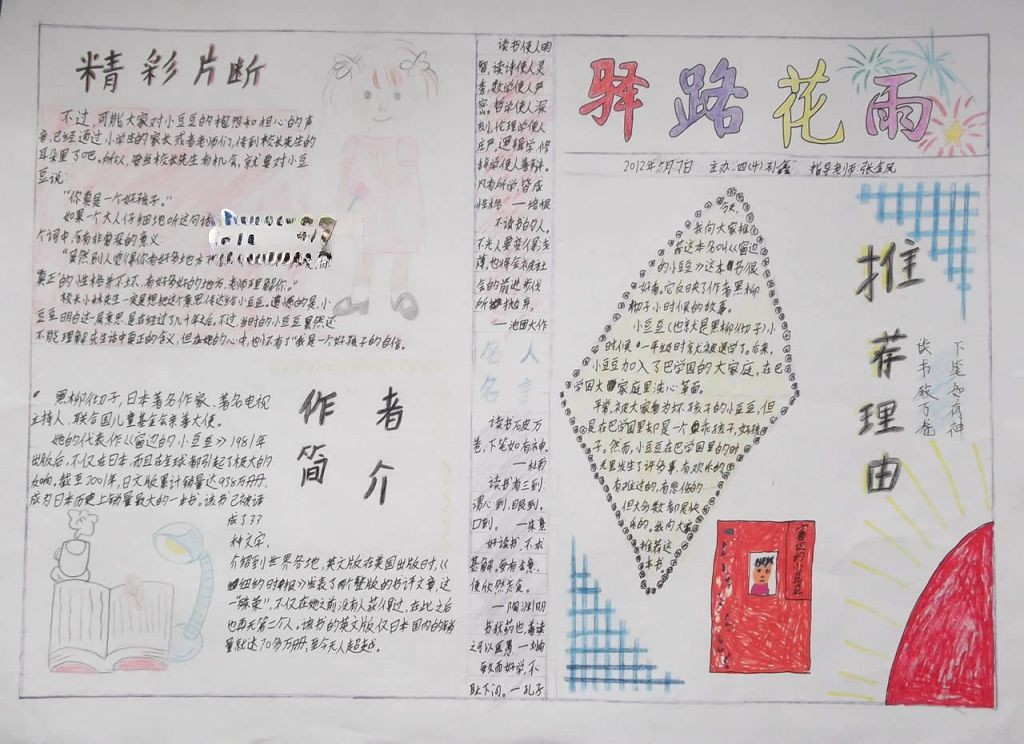 精彩片断
不过,可能大家对小豆豆的想和担心的声
音,已经通过小学生的家长或者老师们,传到校长先生的
耳朵里了吧。所以,每当校长先生有机会,就要对小豆
豆说
“你真是一个好孩子。”
如果一个大人仔细地听这句话
个词中,含有非常深的意义:
“虽然别人觉得你有好多地方
真正的性格并不坏,有好多好的地方,老师理解你。”
校长小林先生一定是想把这个意思传达给小豆豆。遗憾的是,小
豆豆明白这一层意思,是在经过了几十年之后。不过,当时的小豆豆虽然还
不能理解先生话中真正的含义,但在她的心中,也怀有了“我是一个好孩子”的自信。
作者简介
黑柳彻子,日本著名作家、著名电视
主持人、联合国儿童基金会亲善大使。
她的代表作《窗边的小豆豆》1981年
出版后,不仅在日本,而且在全球都引起了极大的
反响,截至2001年,日文版累计销量达938万册,
成为日本历史上销量最大的一本书。该书已被译
成了33
种文字,
介绍到世界各地,英文版在美国出版时,《
纽约时报》发表了两个整版的书评文章,这
一“殊荣”,不仅在她之前没有人获得过,在此之后
也再无第二个人。该书的英文版仅日本国内的销
量就达70多万册,至今无人超越。
读书使人明
智,读诗使人灵
秀,数学使人严
密,哲学使人深
刻,伦理学使人
庄严,逻辑学修
辞学使人善辩。
凡有所学,皆成
性格 —培根
不读书的人,
不光人要变得浅
薄,也将会被社
会的前进步伐
所抛弃。
—池田大作
名人
名言
读书破万
卷,下笔如有神。
—杜甫
读书有三到:
谓心到,眼到,
口到。 —朱熹
好读书,不求
甚解,每有会意,
便欣然忘食。
—陶渊明
书犹药也,善读
之可以医愚。—刘向
敏而好学,不
耻下问。—孔子
驿路花雨
2012年5月7日 主办:四(4) 指导老师:张金凤
今天,
我向大家推
荐这本名叫《窗边
的小豆豆》这本书很
好看。它反映了作者黑柳
彻子小时候的故事。
小豆豆(也就是黑柳彻子)小
时候一年级时就被退学了。后来,
小豆豆加入了巴学园的大家庭,在巴
学园大家庭里洗心革面。
平常被大家看为坏孩子的小豆豆,但
是在巴学园里却是一个乖孩子,好孩
子。然而,小豆豆在巴学园里的时
光里发生了许多事,有欢乐的,
有难过的,有悲伤的……
但大多数都是快
乐的。我向大家
推荐这
本书。
推荐理由
读书破万卷
下笔如有神
窗边的小豆豆